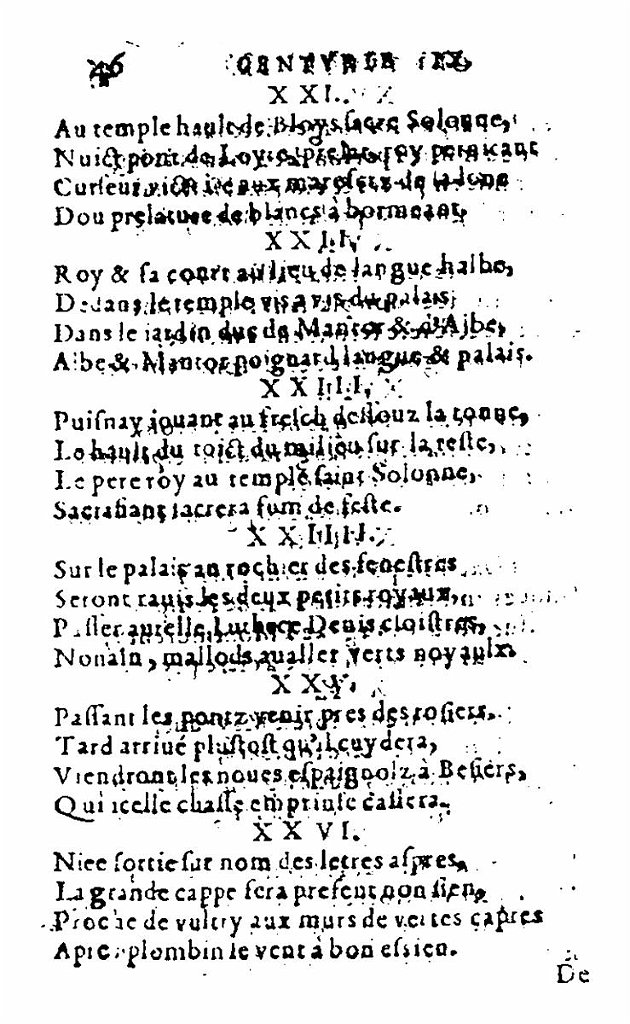 46 CENTVRIE IX.
XXI.
Au temple hault de Bloys sacre Solonne,
Nuict pont de Loyre, prelat, roy pernicant
Curseur victoire aux maresetz de la lone
Dou prelature de blancs à bormeant.
XXII.
Roy & sa court au lieu de langue halbe,
Dedans le temple vis a vis du palais
Dans le iardin duc de Mantor & d'Albe,
Albe & Mantor poignard langue & palais.
XXIII.
Puisnay iouant au fresch dessouz la tonne,
Le hault du toict du milieu sur la teste,
Le pere roy au temple saint Solonne,
Sacrifiant sacrera fum de feste.
XXIIII.
Sur le palais au rochier des fenestres
Seront rauis les deux petits royaux,
Passer aurelle Luthece Denis cloistres,
Nonain, mallods aualler verts noyaulx.
XXV.
Passant les pontz venir pres des rosiers,
Tard arriué plustost qu'il cuydera,
Viendront les noues espaignolz à Besiers,
Qui icelle chasse emprinse cassera.
XXVI.
Nice sortie sur nom des letres aspres,
La grande cappe fera present non sien,
Proche de vultry aux murs de vertes capres
Apres plombin le vent à bon essien.
De